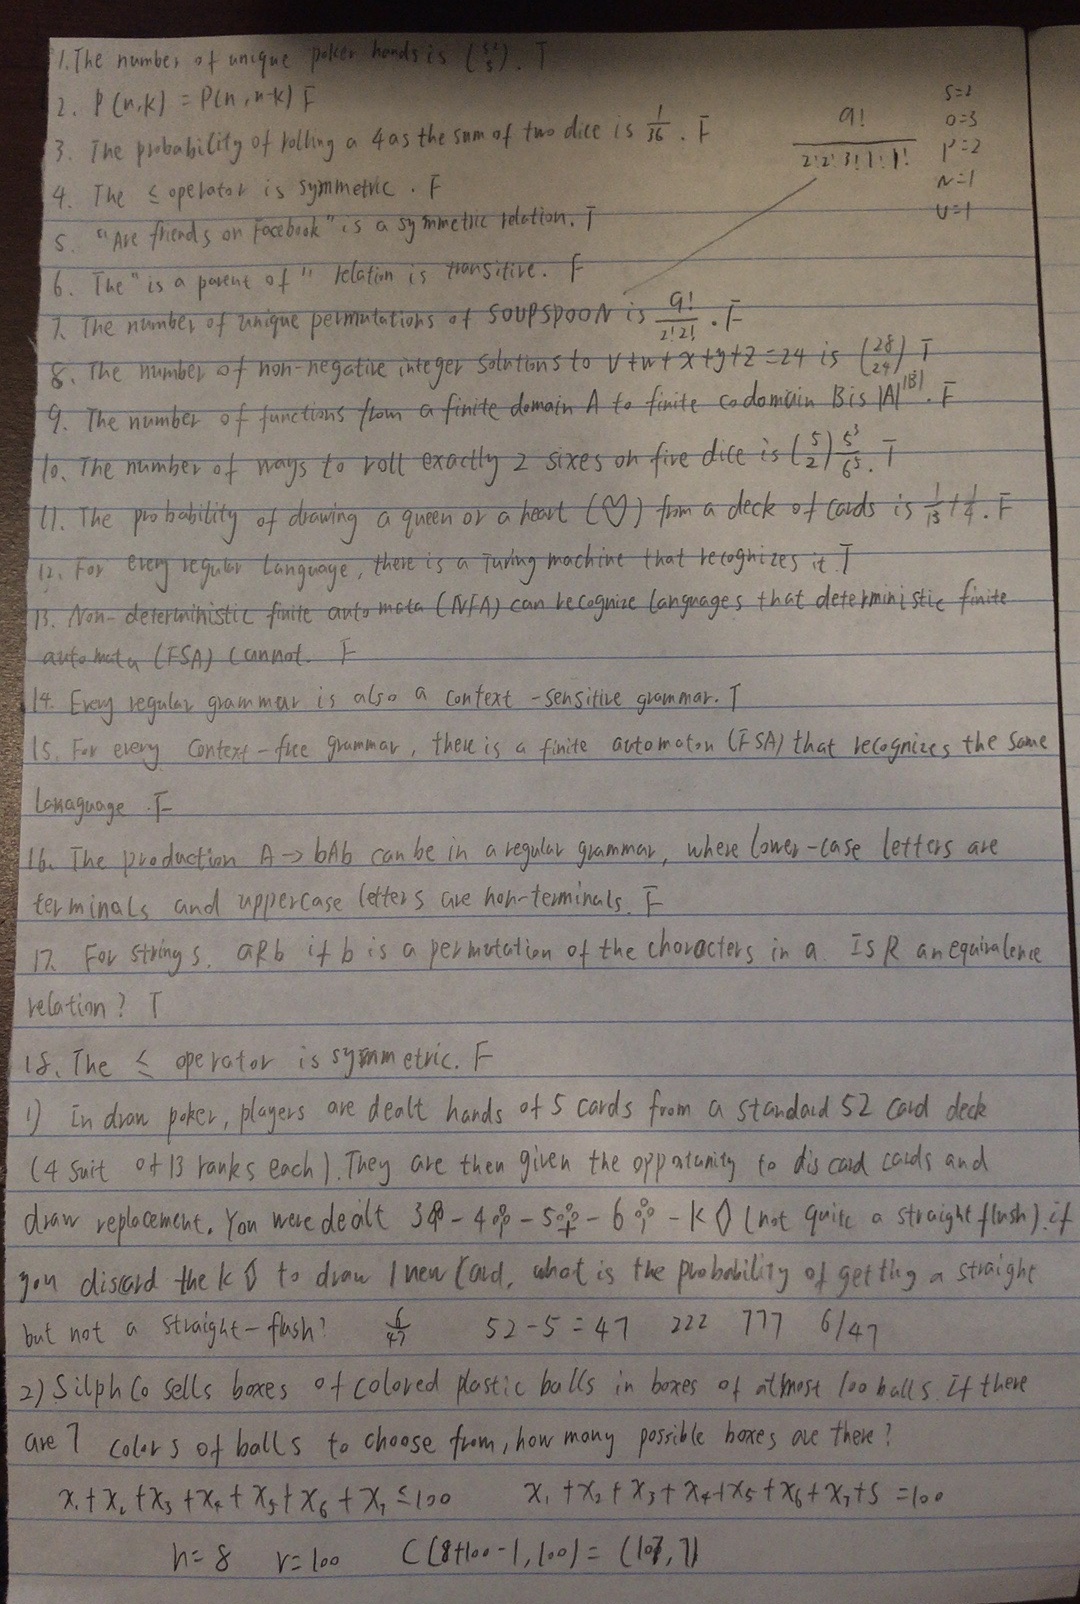 1. The number of unique poker hands is (52 5). T
2. P(n,k) = P(n, n-k) F
3. The probability of rolling a 4 as the sum of two dice is 1/36. F
9! / 2!2!3!1!1!
S=2
O=3
P=2
N=1
U=1
4. The ≤ operator is symmetric. F
5. "Are friends on Facebook" is a symmetric relation. T
6. The "is a parent of" relation is transitive. F
7. The number of unique permutations of SOUPSPOON is 9!/2!2!. F
8. The number of non-negative integer solutions to v+w+x+y+z=24 is (28 24) T
9. The number of functions from a finite domain A to finite codomain B is |A|^|B|. F
10. The number of ways to roll exactly 2 sixes on five dice is (5 2) 5³/6⁵. T
11. The probability of drawing a queen or a heart (♡) from a deck of cards is 1/13 + 1/4. F
12. For every regular language, there is a Turing machine that recognizes it. T
13. Non-deterministic finite automata (NFA) can recognize languages that deterministic finite
automata (FSA) cannot. F
14. Every regular grammar is also a context-sensitive grammar. T
15. For every context-free grammar, there is a finite automaton (FSA) that recognizes the same
lanaguage. F
16. The production A → bAb can be in a regular grammar, where lower-case letters are
terminals and uppercase letters are non-terminals. F
17. For strings. aRb if b is a permutation of the characters in a. Is R an equivalence
relation? T
18. The ≤ operator is symmetric. F
1) In draw poker, players are dealt hands of 5 cards from a standard 52 card deck
(4 suit of 13 ranks each). They are then given the opportunity to discard cards and
draw replacement. You were dealt 3♣ - 4♣ - 5♣ - 6♣ - K♢ (not quite a straight flush). if
you discard the K♢ to draw 1 new card, what is the probability of getting a straight
but not a straight-flush? 6/47 52-5=47 222 777 6/47
2) Silph Co sells boxes of colored plastic balls in boxes of atmost 100 balls. If there
are 7 colors of balls to choose from, how many possible boxes are there?
x₁+x₂+x₃+x₄+x₅+x₆+x₇≤100 x₁+x₂+x₃+x₄+x₅+x₆+x₇+s=100
n=8 r=100 C(8+100-1,100) = (107,7)